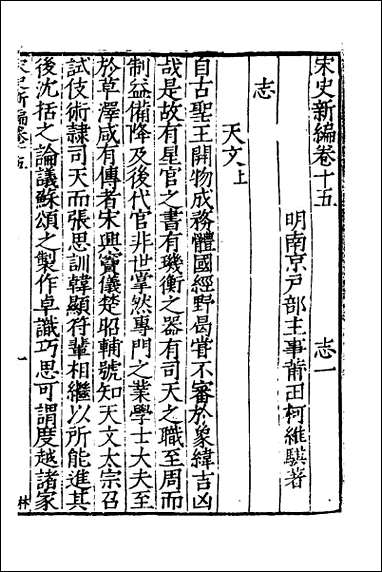 宋史新編卷十五　志一
明南京戸部主事莆田柯維騏著
志
天文上
自古聖王開物成務體國經野曷甞不審於象緯吉凶
哉是故有星官之書有璣衡之器有司天之職至周而
制益備降及後代官非世掌然專門之業學士大夫至
於草澤咸有傳者宋興竇儀楚昭輔號知天文太宗召
試伎術隷司天而張思訓韓顯符輩相繼以所能進其
後沈括之論議蘇頌之製作卓識巧思可謂度越諸家
宋史新編卷十五
一
林